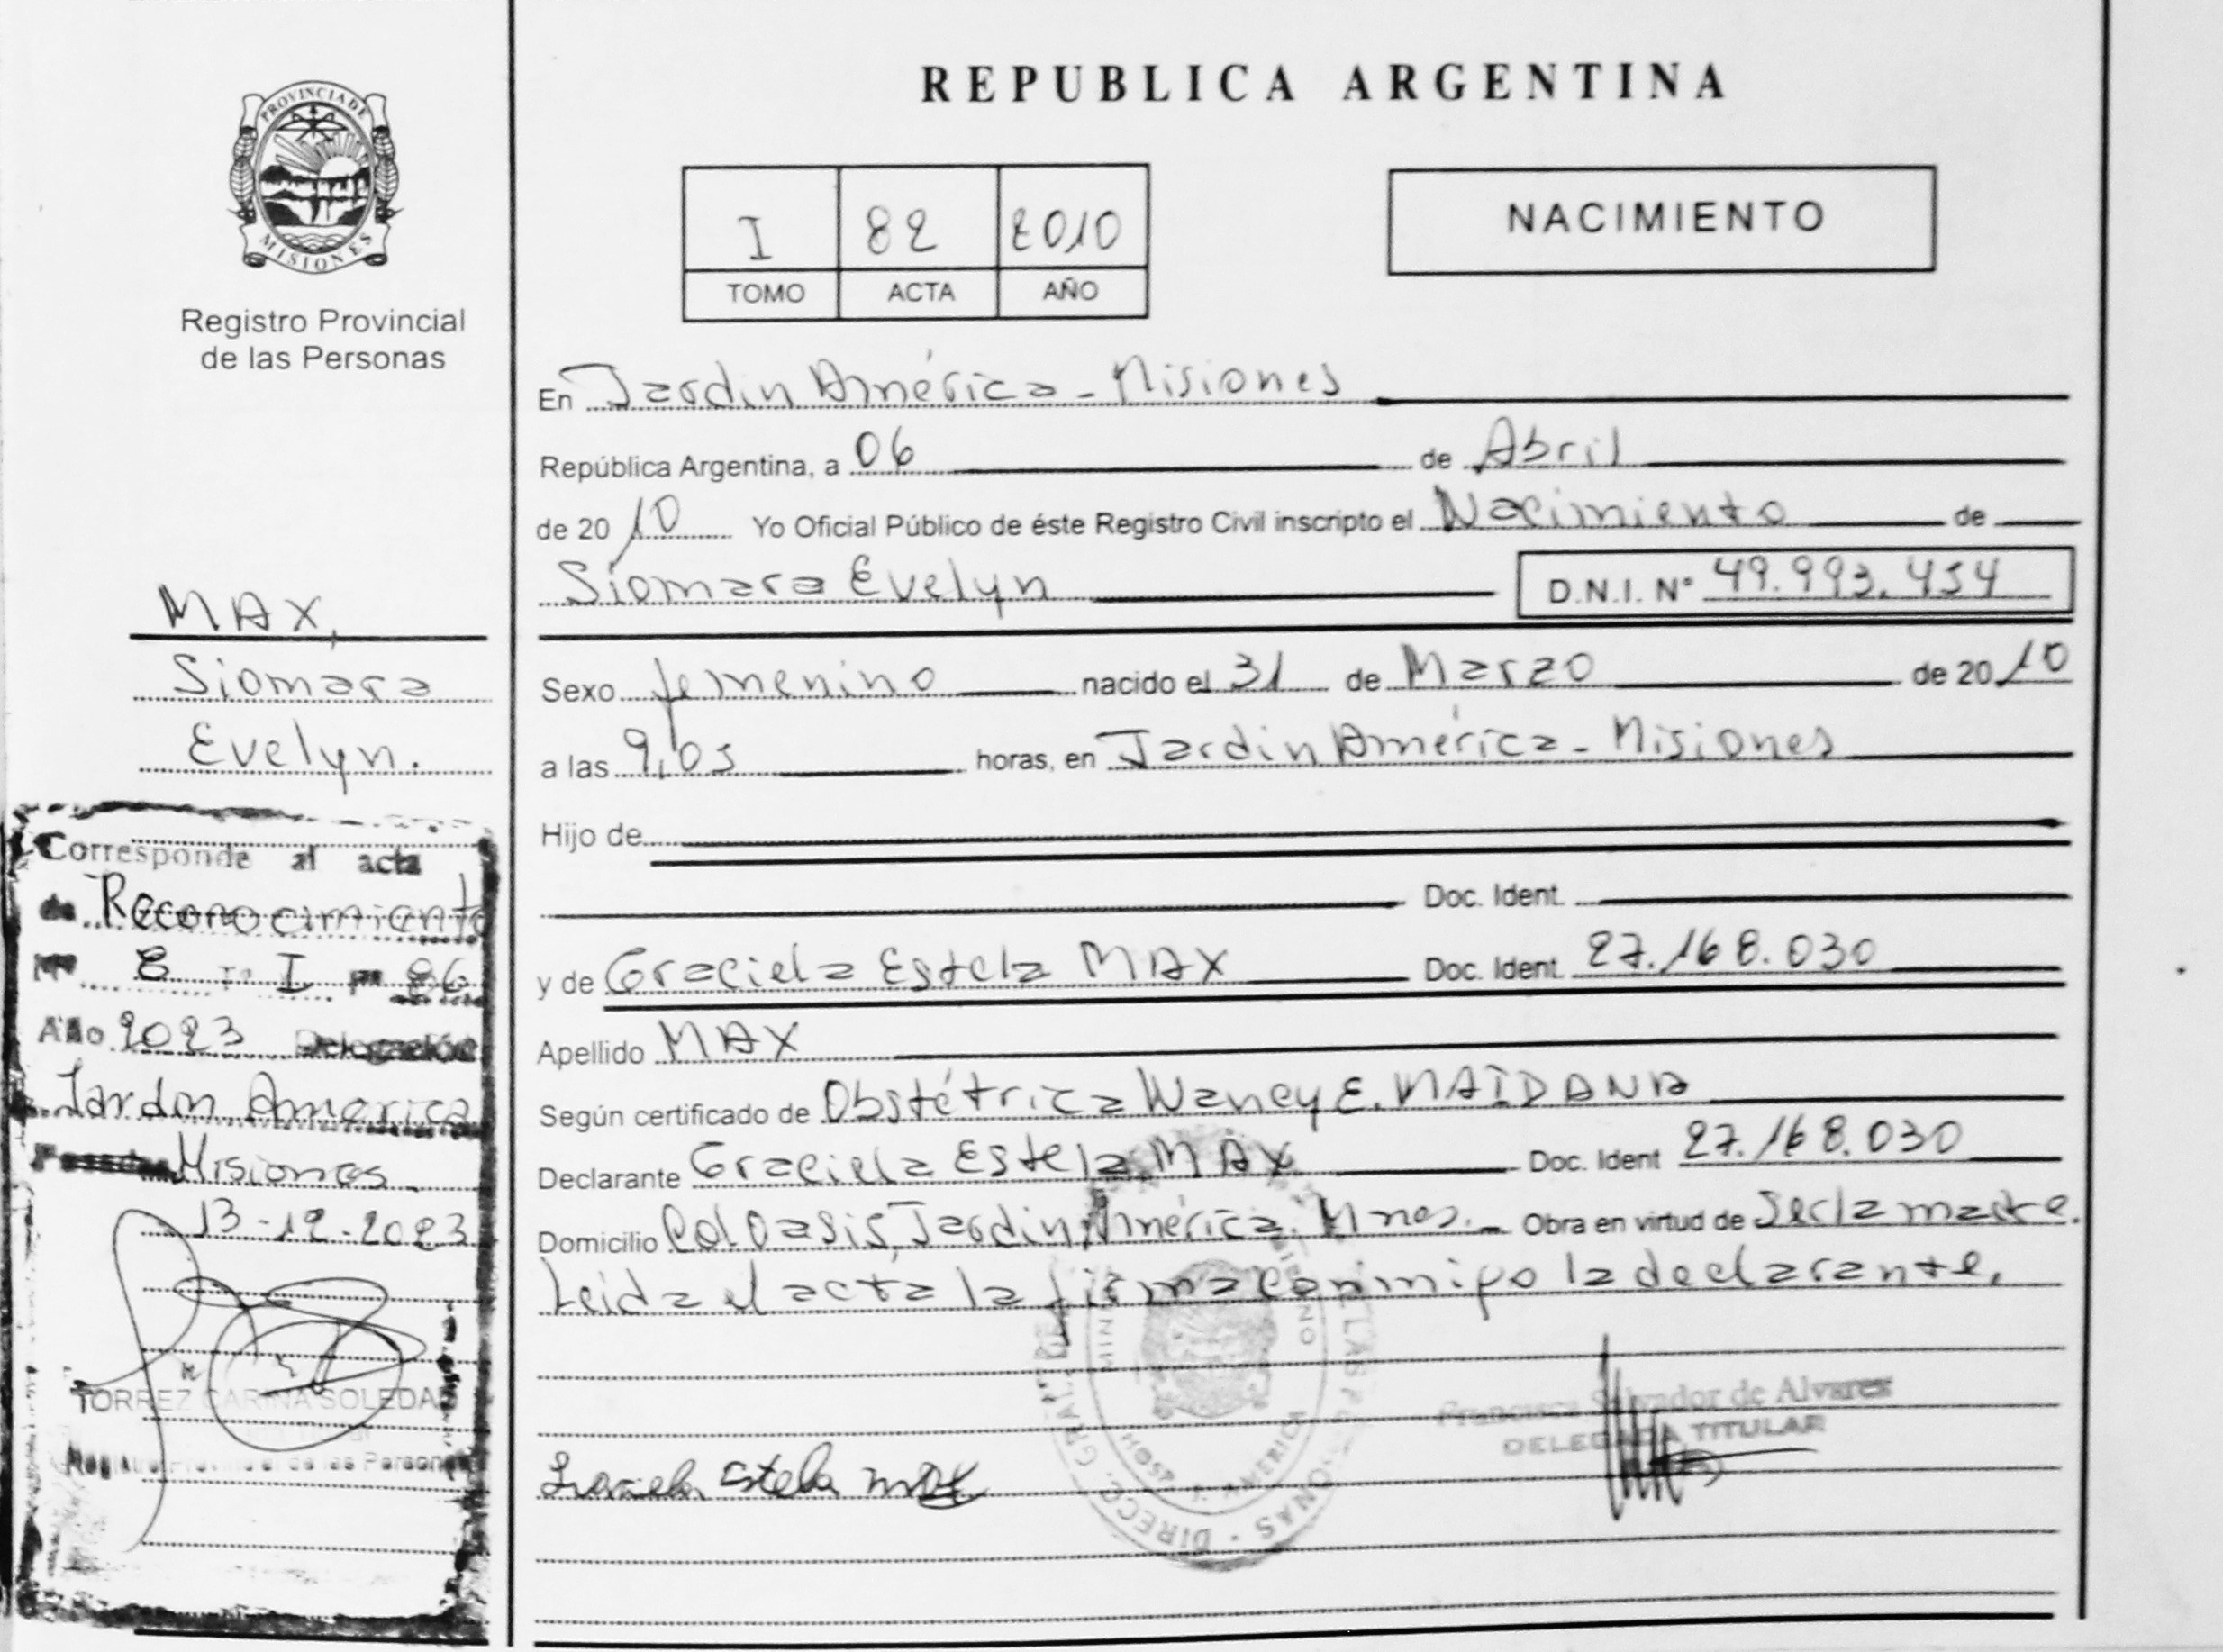 PROVINCIA DE
MISIONES
Registro Provincial
de las Personas
MAX,
Siomara
Evelyn.
Corresponde al acta
de Reconocimiento
Nº 8 Tº I Fº 86
Año 2023 Delegación
Jardín America
Misiones
13-12-2023
TORREZ CARINA SOLEDAD
Registro Provincial de las Personas
REPUBLICA ARGENTINA
I 82 2010
TOMO ACTA AÑO
NACIMIENTO
En Jardín América - Misiones
República Argentina, a 06 de Abril
de 2010 Yo Oficial Público de éste Registro Civil inscripto el Nacimiento de
Siomara Evelyn D.N.I. Nº 49.993.454
Sexo femenino nacido el 31 de Marzo de 2010
a las 9,05 horas, en Jardín América - Misiones
Hijo de
Doc. Ident.
y de Graciela Estela MAX Doc. Ident. 27.168.030
Apellido MAX
Según certificado de Obstétrica Nancy E. MAIDANA
Declarante Graciela Estela MAX Doc. Ident 27.168.030
Domicilio Col. Oasis, Jardín América. Mnes. Obra en virtud de Ser la madre.
Leida el acta la firma conmigo la declarante.
Francisca Salvador de Alvarez
DELEGADA TITULAR
Graciela Estela MAX
DIRECC. GRAL. LAS PERSONAS
HOSP. J. AMERICA